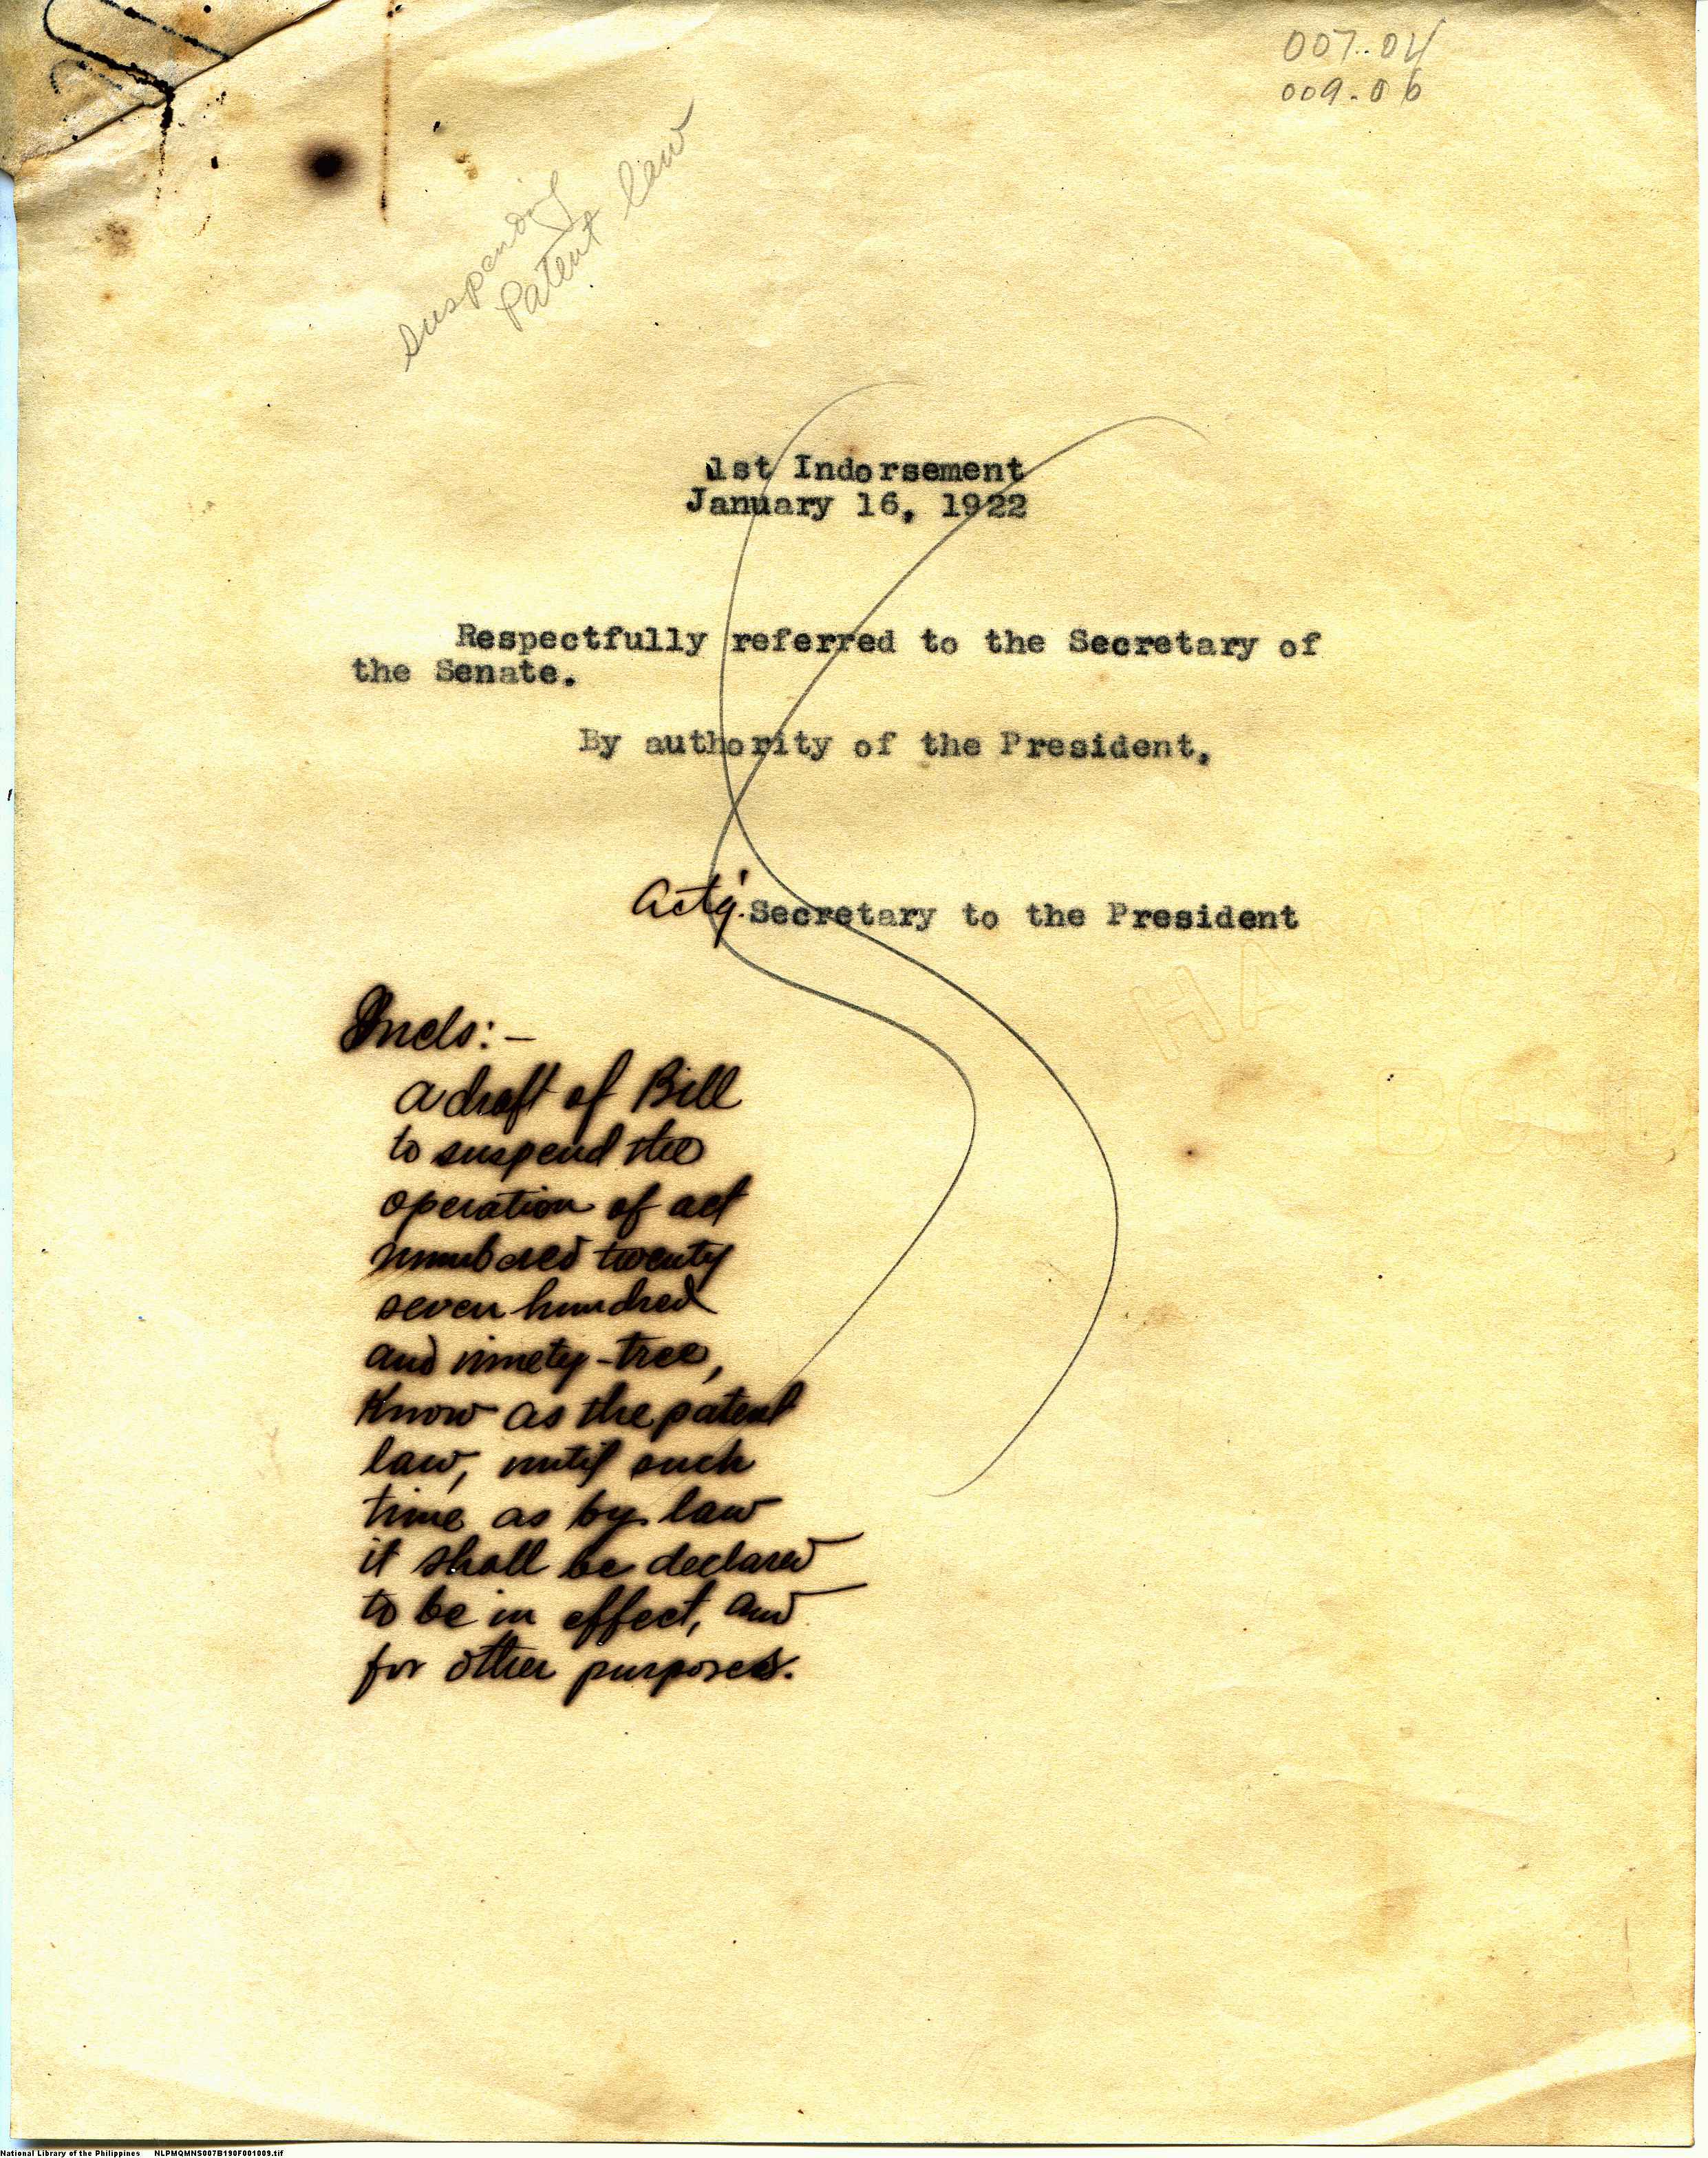 007.04
009.06
suspending
Patent law
1st Indorsement
January 16, 1922
Respectfully referred to the Secretary of
the Senate.
By authority of the President,
Actg. Secretary to the President
Incls:-
a draft of Bill
to suspend the
operation of act
numbered twenty
seven hundred
and ninety-tree,
know as the patent
law, until such
time as by law
it shall be declared
to be in effect, and
for other purposes.
National Library of the Philippines NLPMQMNS007B190F001009.tif